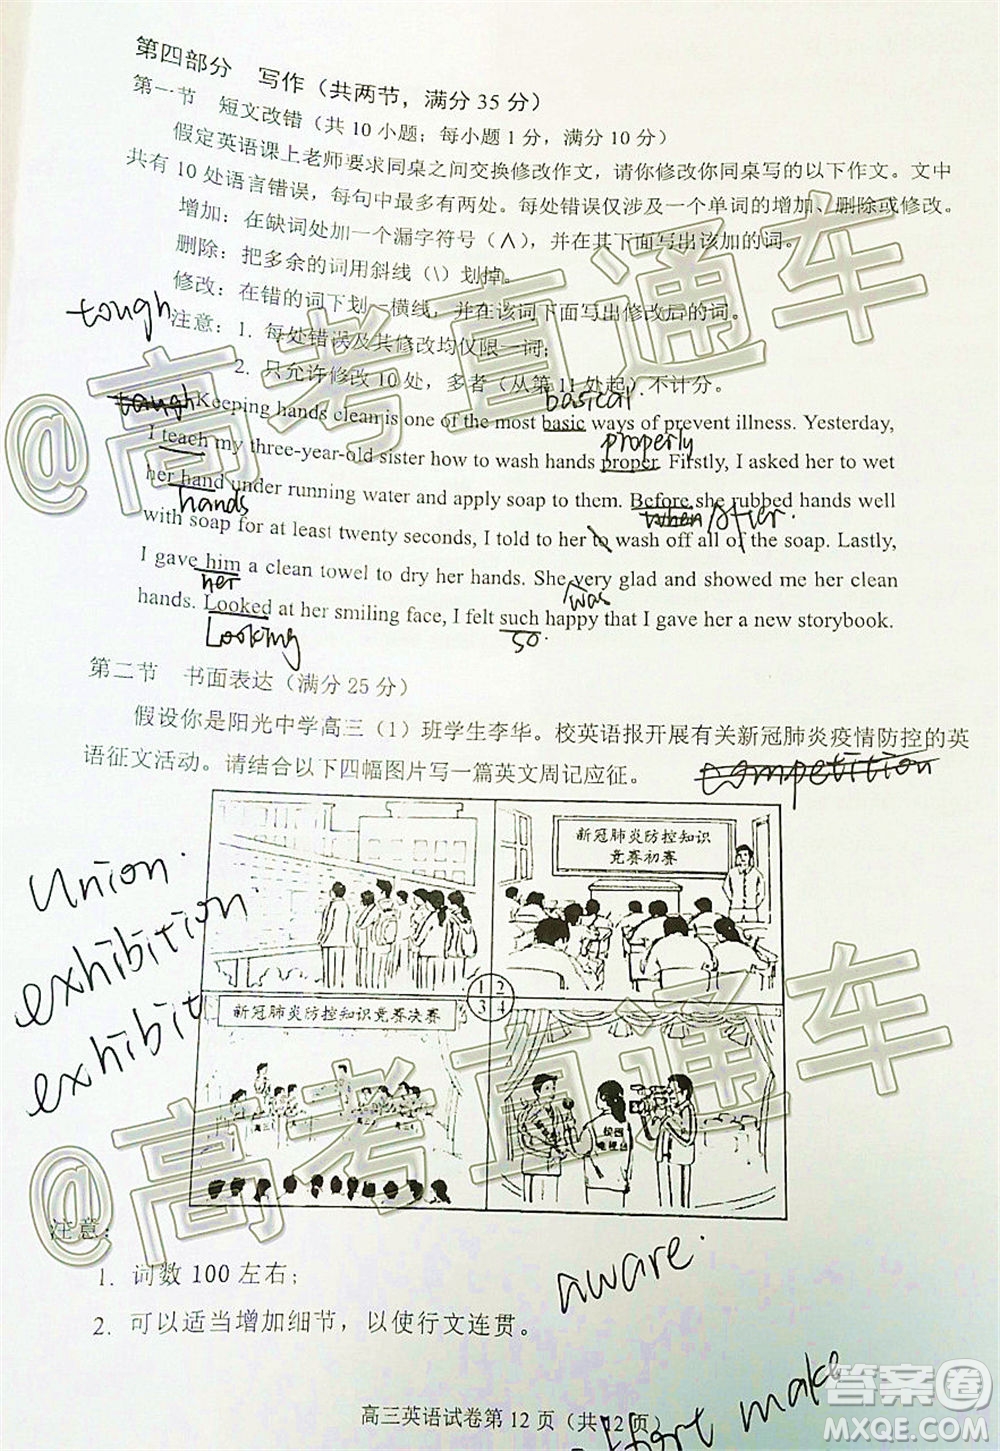 第四部分 写作（共两节，满分35分）
第一节 短文改错（共10小题；每小题1分，满分10分）
假定英语课上老师要求同桌之间交换修改作文，请你修改你同桌写的以下作文。文中
共有10处语言错误，每句中最多有两处。每处错误仅涉及一个单词的增加、删除或修改。
增加：在缺词处加一个漏字符号（∧），并在其下面写出该加的词。
删除：把多余的词用斜线（\）划掉。
修改：在错的词下划一横线，并在该词下面写出修改后的词。
tough
注意：1. 每处错误及其修改均仅限一词；
2. 只允许修改10处，多者（从第11处起）不计分。
basical
tough Keeping hands clean is one of the most basic ways of prevent illness. Yesterday,
properly
I teach my three-year-old sister how to wash hands proper. Firstly, I asked her to wet
her hand under running water and apply soap to them. Before she rubbed hands well
hands when/After.
with soap for at least twenty seconds, I told to her to wash off all of the soap. Lastly,
I gave him a clean towel to dry her hands. She very glad and showed me her clean
her was
hands. Looked at her smiling face, I felt such happy that I gave her a new storybook.
Looking so.
第二节 书面表达（满分25分）
假设你是阳光中学高三（1）班学生李华。校英语报开展有关新冠肺炎疫情防控的英
语征文活动。请结合以下四幅图片写一篇英文周记应征。
competition
新冠肺炎防控知识
竞赛初赛
Union.
exhibition
exhibit
1 2
3 4
新冠肺炎防控知识竞赛决赛
高三
校园
电视台
注意：
1. 词数100左右；
2. 可以适当增加细节，以使行文连贯。
aware.
make
高三英语试卷第12页（共12页）
@高考直通车
@高考直通车
答案圈
MXQE.COM